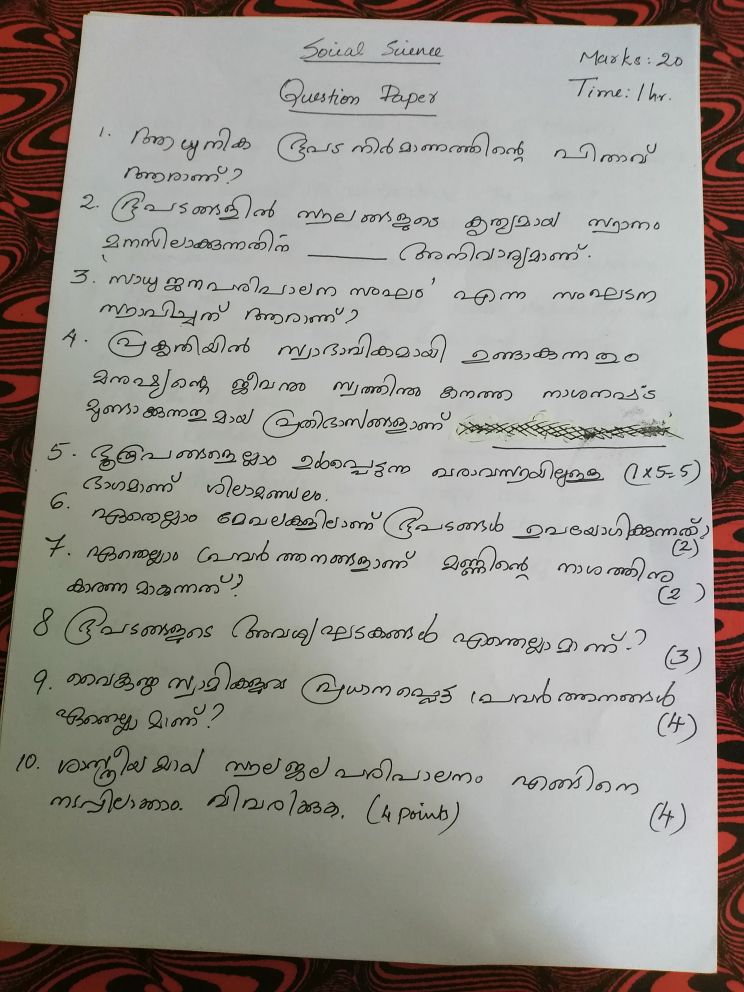 Social Science
Marks: 20
Question Paper
Time: 1 hr.
1. ആധുനിക ഭൂപട നിർമാണത്തിന്റെ പിതാവ്
ആരാണ്?
2. ഭൂപടങ്ങളിൽ സ്ഥലങ്ങളുടെ കൃത്യമായ സ്ഥാനം
മനസിലാക്കുന്നതിന് ______ അനിവാര്യമാണ്.
3. സാധുജനപരിപാലന സംഘം' എന്ന സംഘടന
സ്ഥാപിച്ചത് ആരാണ്?
4. പ്രകൃതിയിൽ സ്വാഭാവികമായി ഉണ്ടാകുന്നതും
മനുഷ്യന്റെ ജീവനും സ്വത്തിനും കനത്ത നാശനഷ്ട
മുണ്ടാക്കുന്നതുമായ പ്രതിഭാസങ്ങളാണ്
5. ഭൂരൂപങ്ങളെല്ലാം ഉൾപ്പെടുന്ന ഖരാവസ്ഥയിലുള്ള (1x5=5)
ഭാഗമാണ് ശിലാമണ്ഡലം.
6. ഏതെല്ലാം മേഖലകളിലാണ് ഭൂപടങ്ങൾ ഉപയോഗിക്കുന്നത്?
(2)
7. ഏതെല്ലാം പ്രവർത്തനങ്ങളാണ് മണ്ണിന്റെ നാശത്തിനു
കാരണമാകുന്നത്? (2)
8 ഭൂപടങ്ങളുടെ അവശ്യഘടകങ്ങൾ എന്തെല്ലാമാണ്?
(3)
9. വൈകുണ്ഠ സ്വാമികളുടെ പ്രധാനപ്പെട്ട പ്രവർത്തനങ്ങൾ
ഏതെല്ലാമാണ്? (4)
10. ശാസ്ത്രീയമായ സ്ഥലജലപരിപാലനം എങ്ങിനെ
നടപ്പിലാക്കാം. വിവരിക്കുക. (4 points) (4)